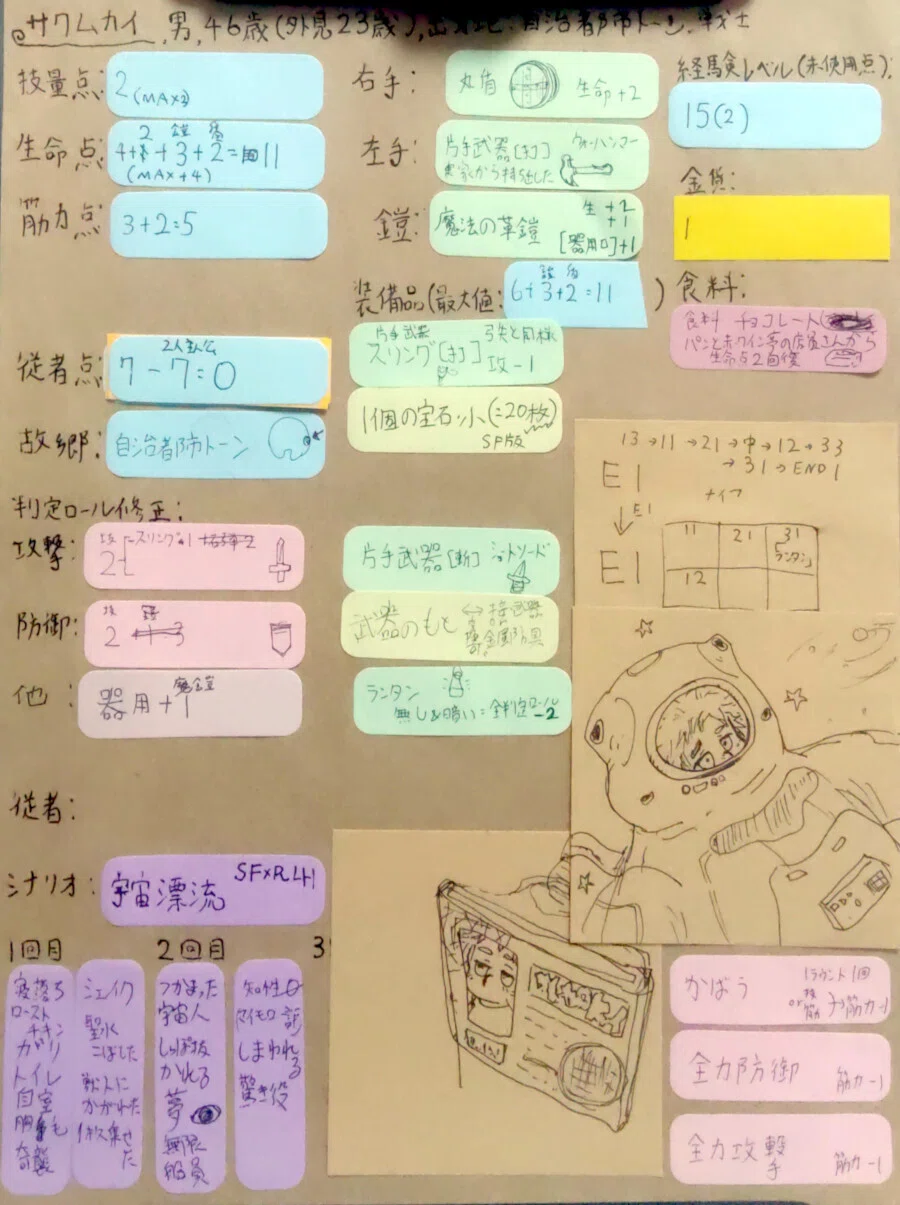 サクムカイ,男,46歳(外見23歳),出身地:自治都市トーン,戦士
技量点:
2(MAX2)
生命点
2 鎧 盾
+3+2=11
(MAX+4)
筋力点
3+2=5
右手:
丸盾
生命+2
左手:
片手武器[打]
ウォーハンマー
実家から持ち出した
鎧:
魔法の革鎧
生+2
+1
[器用ロ]+1
経験レベル(未使用点):
15(2)
金貨:
1
装備品(最大値:
6+3+2=11
)
食料:
食料 チョコレート
パンと赤ワイン亭の店員さんから
生命点2回復
片手武器
スリング[打]
弓矢と同様
攻-1
1個の宝石・小(=20枚)
SP版
従者点
2人主人公
7-7=0
故郷:
自治都市トーン
判定ロール修正:
攻撃:
2
防御:
2
他:
器用+1
魔法鎧
片手武器[斬]
ショートソード
武器のもと
ランタン
無し&暗い=全判定ロール-2
13→11→21→中→12→33
→31→END1
E1
E1
E1
ナイフ
11
21
31
ランタン
12
従者:
シナリオ:
宇宙漂流
SF×R4H
1回目
2回目
3
寝落ち
ロースト
チキン
ガリ
トイレ
自室
奇襲
シェイク
聖水
こぼした
獣人に
かがれた
つかまった
宇宙人
しっぽ抜
かれる
夢
無限
船員
知性ロ
しまわれ
る
驚き役
かばう
1ラウンド1回
筋力-1
全力防御
筋力-1
全力攻撃
手
筋力-1